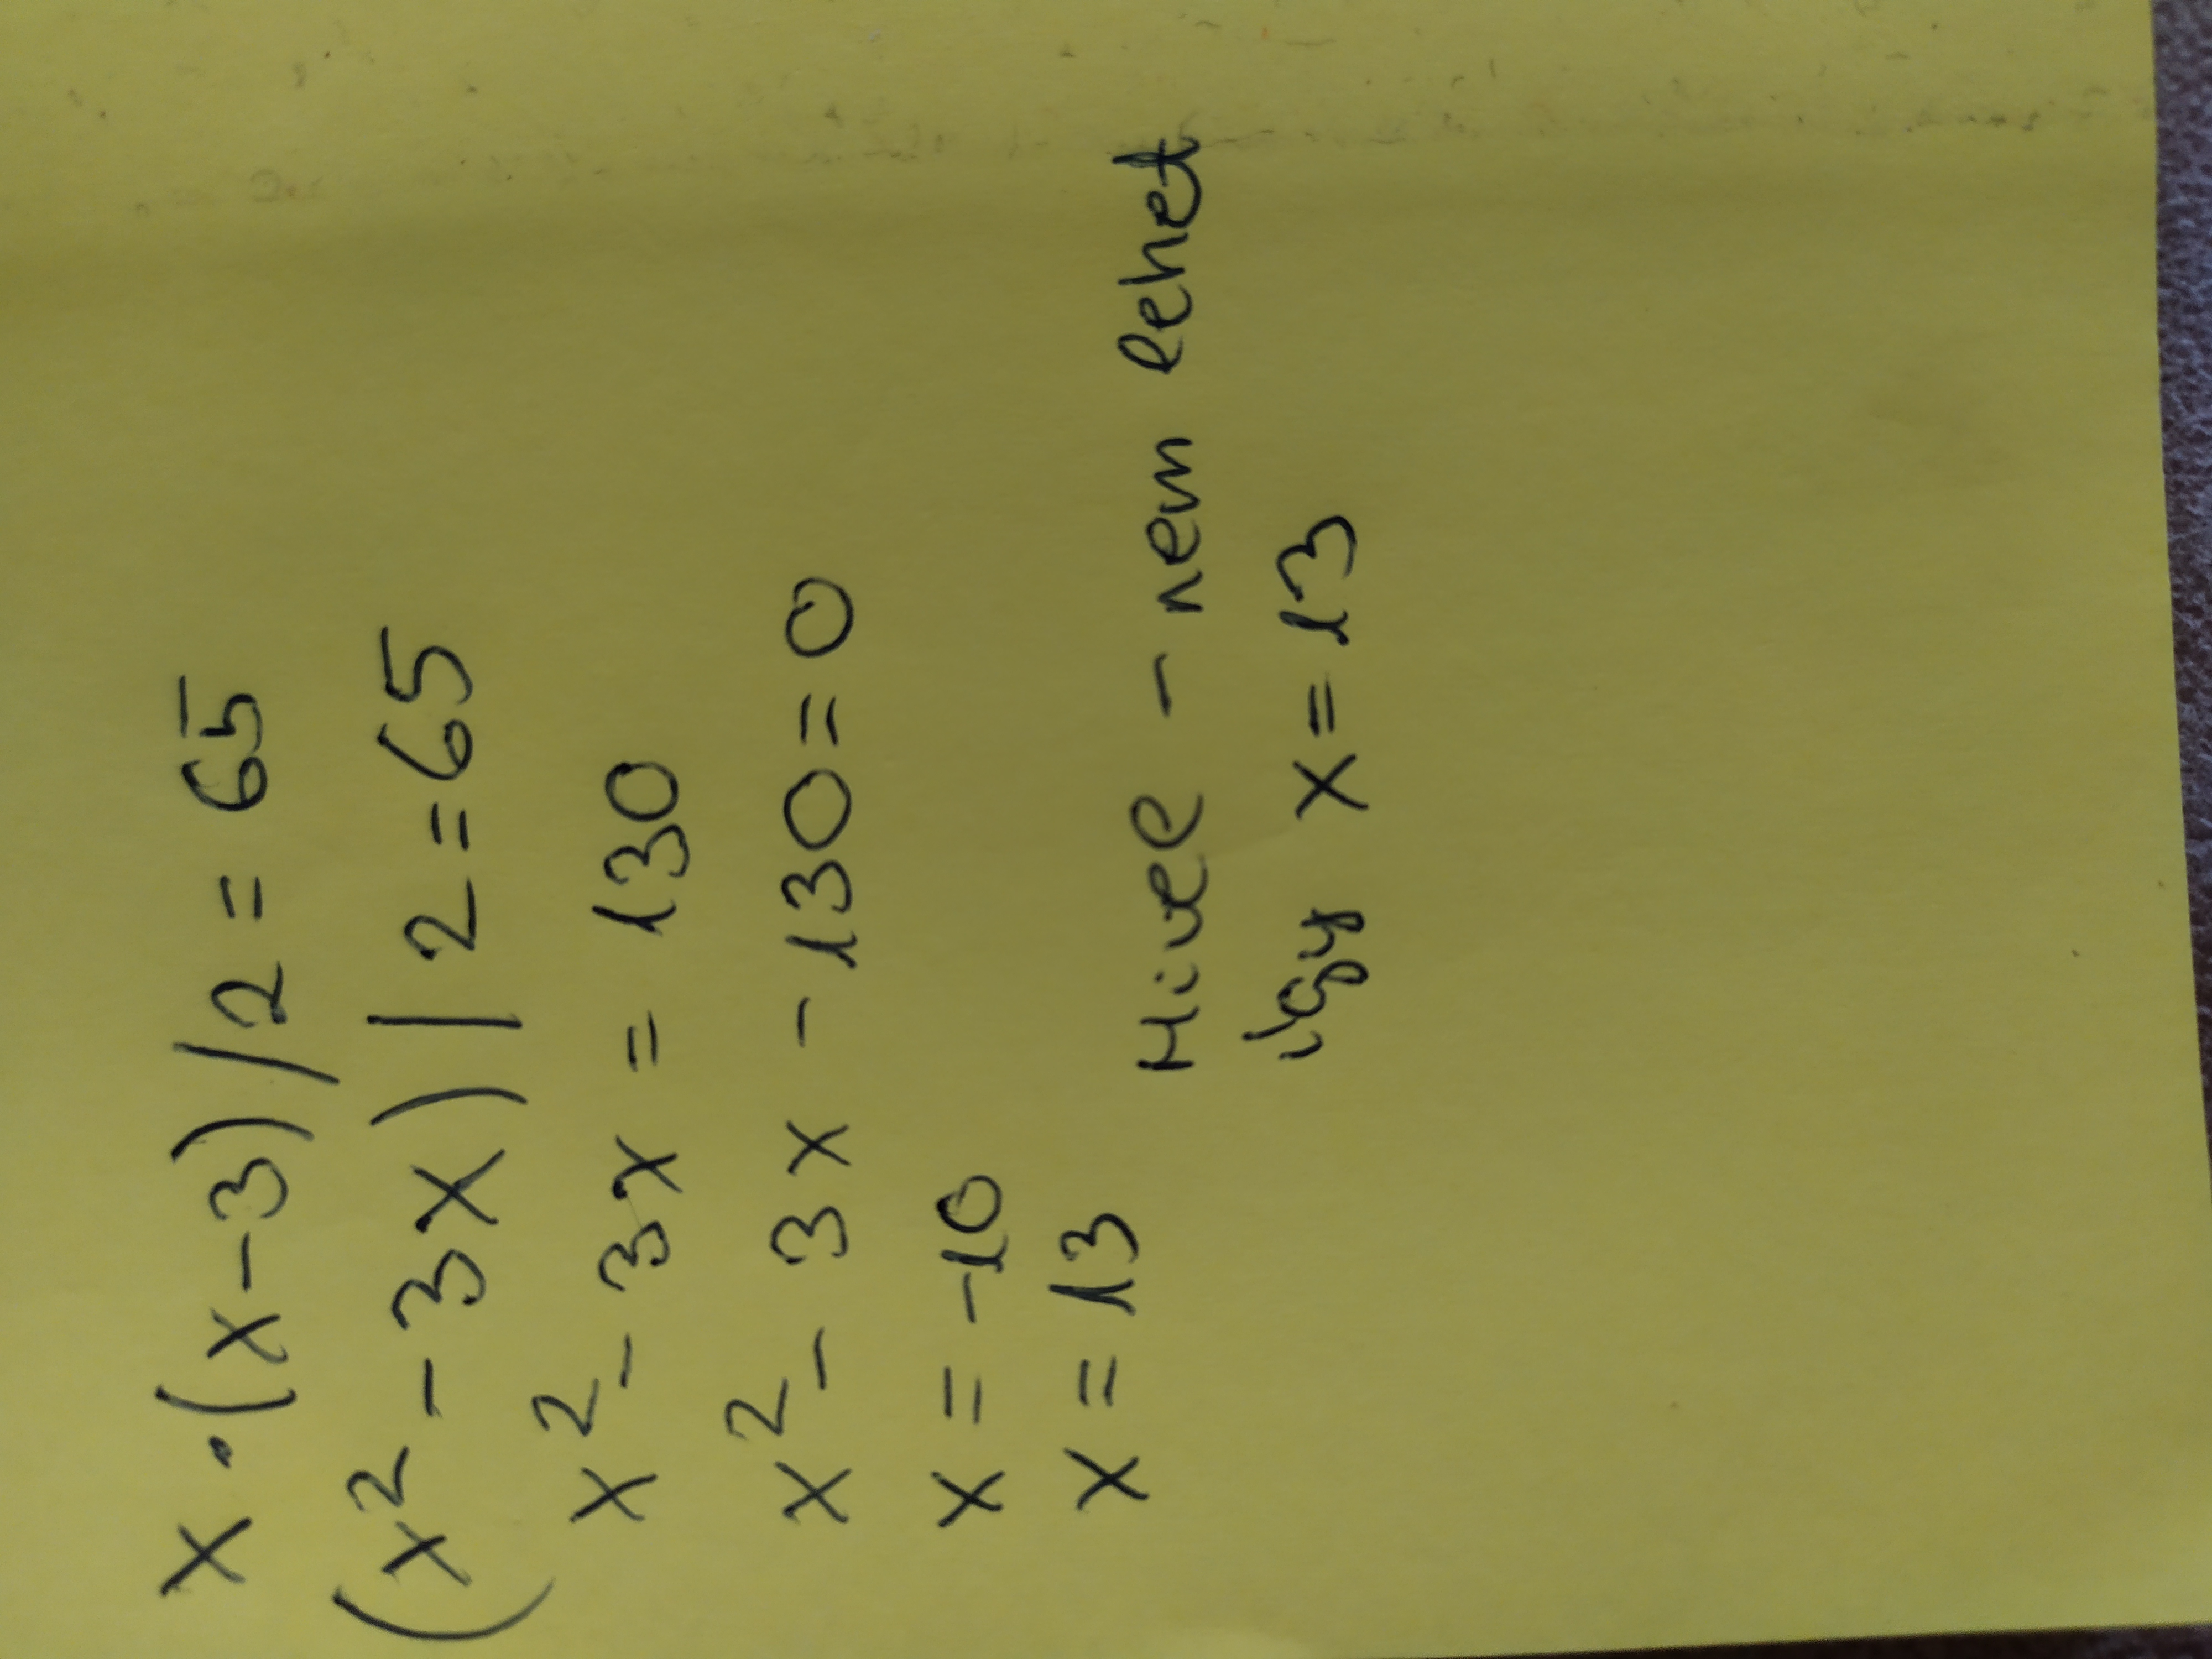 x·(x-3)/2=65
(x²-3x)/2=65
x²-3x=130
x²-3x-130=0
x=-10
x=13
Mivel - nem lehet
így x=13